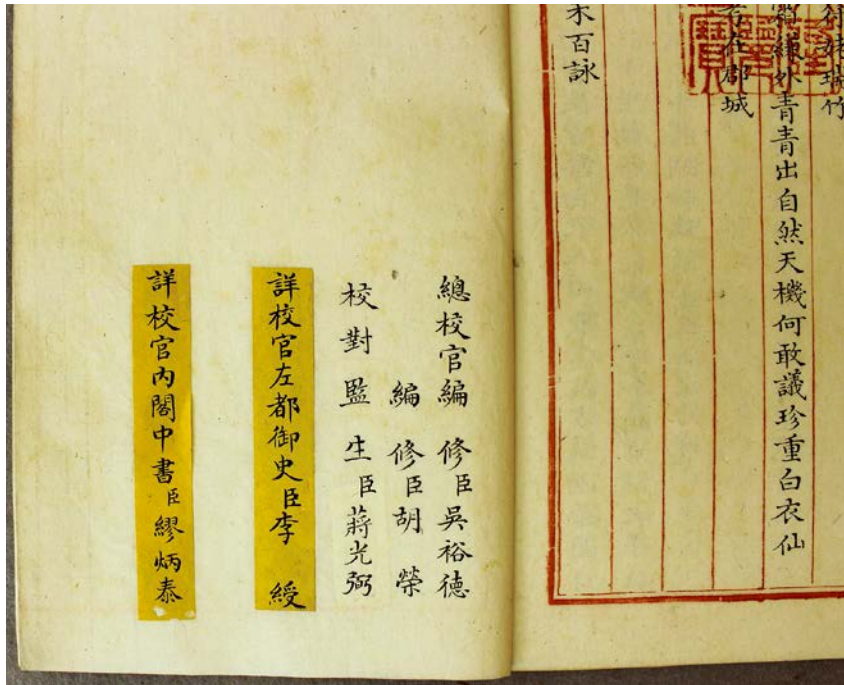 瑞竹
外青青出自然天機何敢議珍重白衣仙
在郡城
禾百詠
總校官編修臣吳裕德
編修臣胡榮
校對監生臣蔣光弼
詳校官左都御史臣李綬
詳校官內閣中書臣繆炳泰